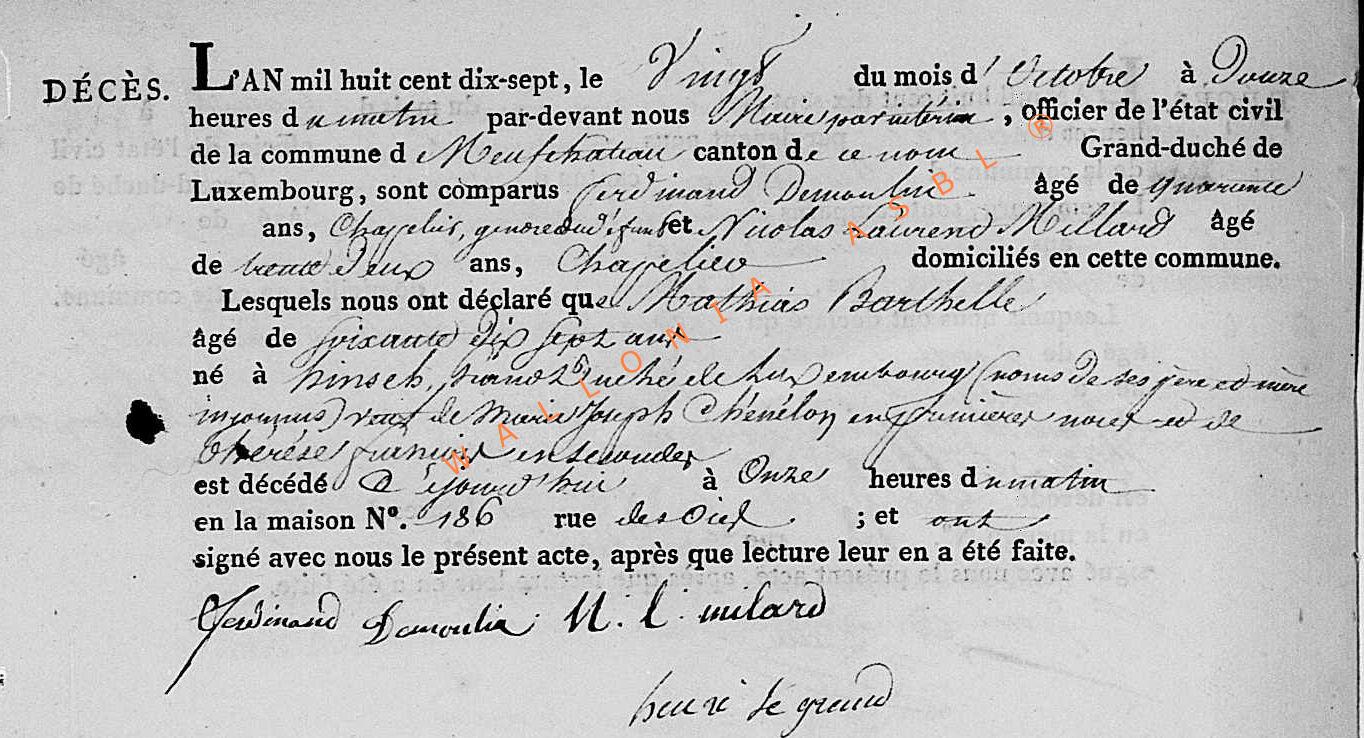 DÉCÈS. L'AN mil huit cent dix-sept, le Vingt du mois d'Octobre à Douze
heures du matin par-devant nous Maire par interim, officier de l'état civil
de la commune d Neufchateau canton de ce nom Grand-duché de
Luxembourg, sont comparus Ferdinand Demoulin âgé de quarante
ans, Chapelier, gendre du défunt et Nicolas Laurend Millard âgé
de trente deux ans, Chapelier domiciliés en cette commune.
Lesquels nous ont déclaré que Mathias Barthelle
âgé de soixante dix sept ans
né à hinsch, Grand Duché de Luxembourg (noms de ses père et mère
inconnus) veuf de Marie Joseph Chénélon en premières noces et de
thérèse françois en secondes
est décédé Cejourd'hui à Onze heures du matin
en la maison No. 186 rue des ; et ont
signé avec nous le présent acte, après que lecture leur en a été faite.
Ferdinand Demoulin N. L. milard
henri le grand
WALLONIA ASBL ®